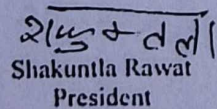 शकुन्तला
Shakuntla Rawat
President